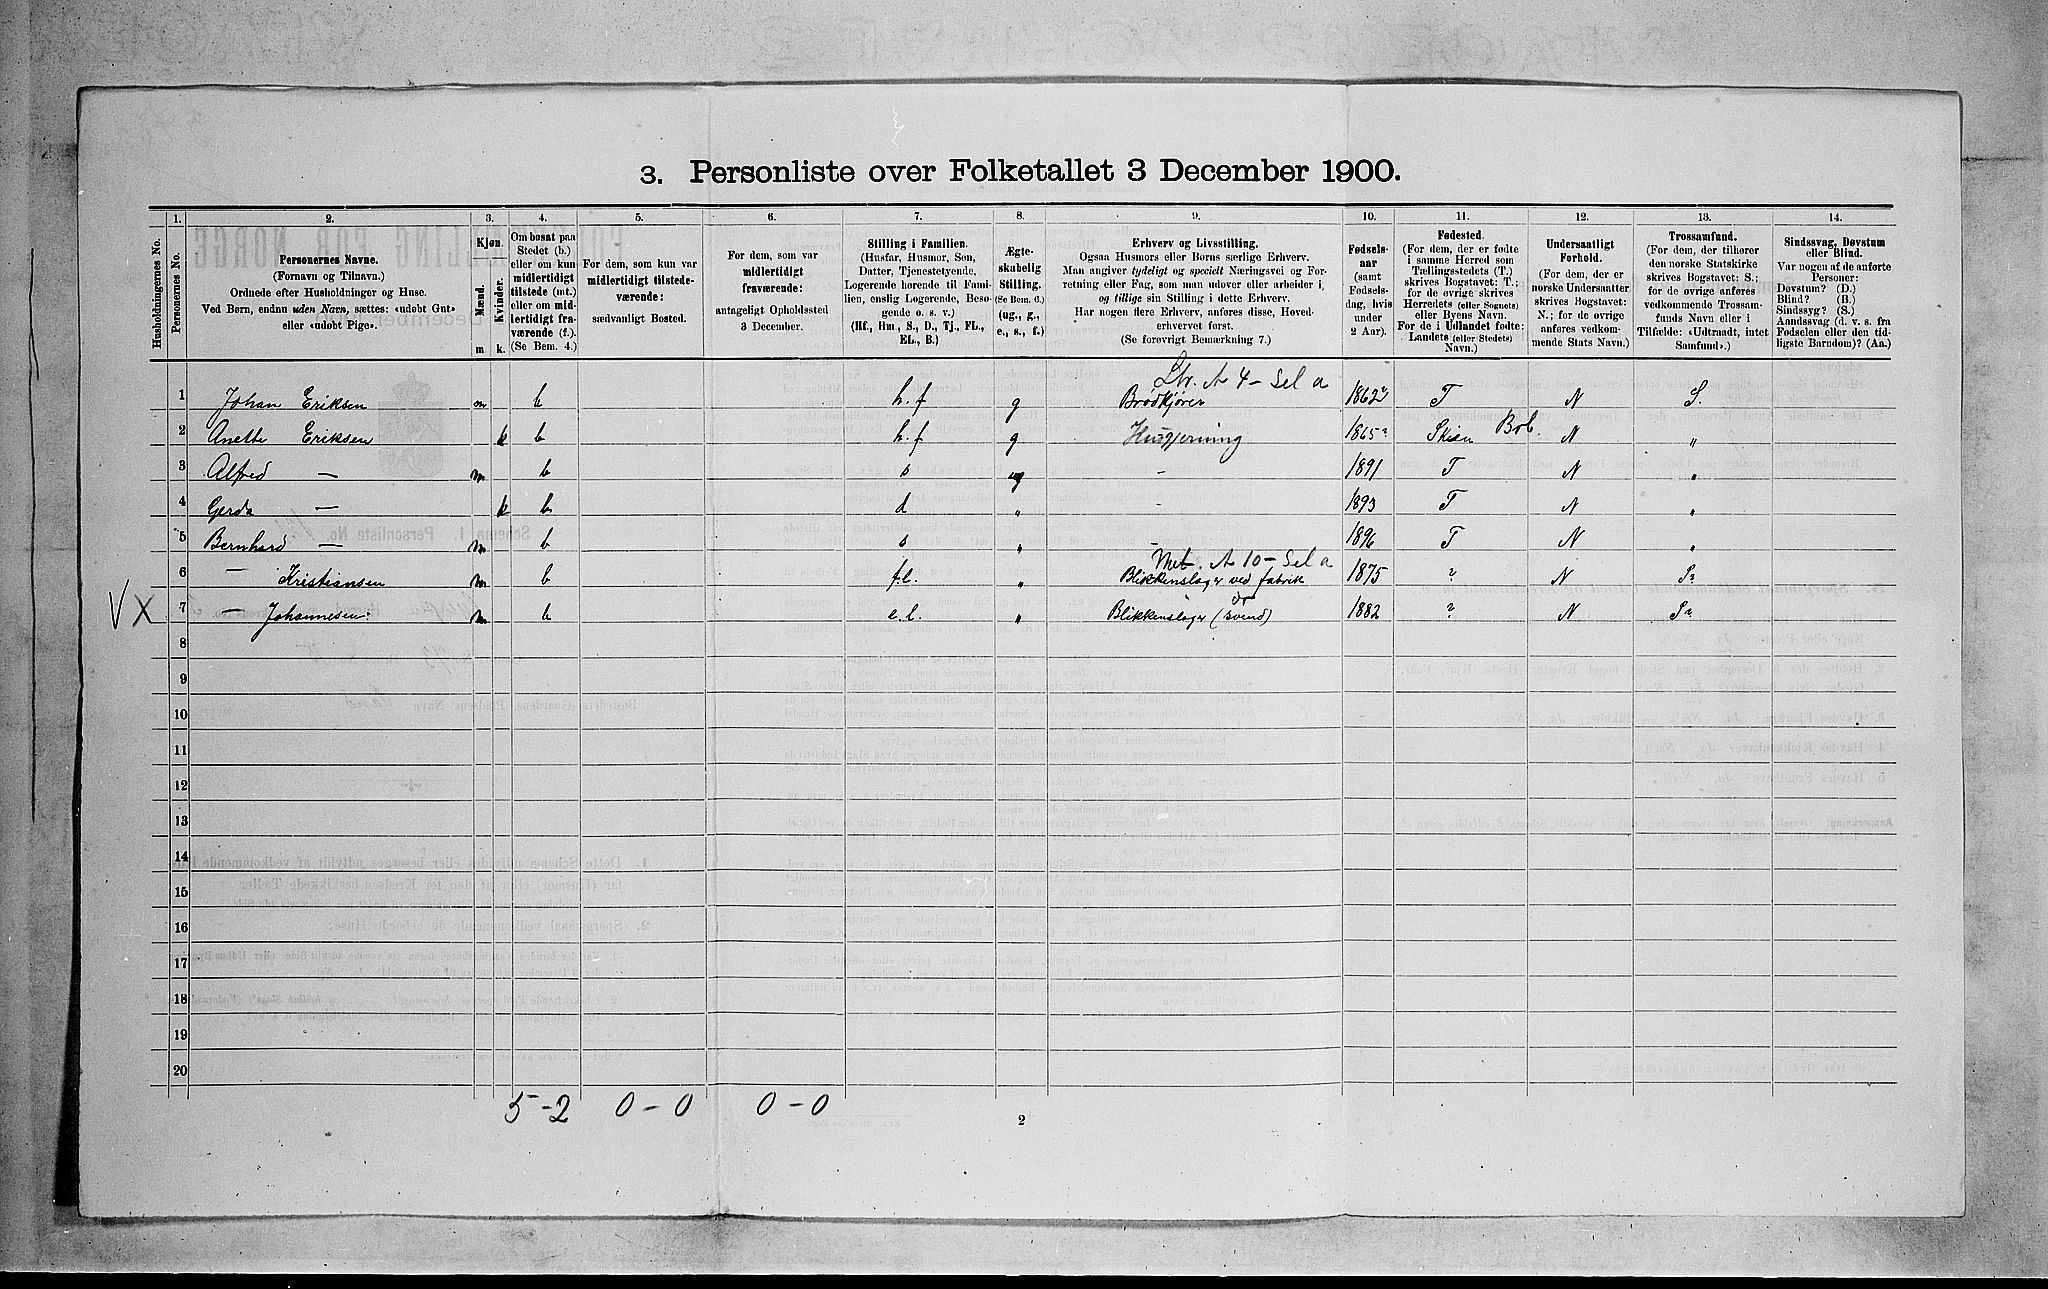 3. Personliste over Folketallet 3 December 1900.
Husholdningernes No.
1.
Personernes No.
2.
Personernes Navne.
(Fornavn og Tilnavn.)
Ordnede efter Husholdninger og Huse.
Ved Børn, endnu uden Navn, sættes: «udøbt Gut»
eller «udøbt Pige».
3.
Kjøn.
Mænd.
Kvinder.
m.
k.
4.
Om bosat paa
Stedet (b.)
eller om kun
midlertidigt
tilstede (mt.)
eller om mid-
lertidigt fra-
værende (f.).
(Se Bem. 4.)
5.
For dem, som kun var
midlertidigt tilstede-
værende:
sædvanligt Bosted.
6.
For dem, som var
midlertidigt
fraværende:
antageligt Opholdssted
3 December.
7.
Stilling i Familien.
(Husfar, Husmor, Søn,
Datter, Tjenestetyende,
Logerende hørende til Fami-
lien, enslig Logerende, Besø-
gende o. s. v.)
(Hf., Hm., S., D., Tj., FL.,
EL., B.)
8.
Ægte-
skabelig
Stilling.
(Se Bem. 6.)
(ug., g.,
e., s., f.)
9.
Erhverv og Livsstilling.
Ogsaa Husmors eller Børns særlige Erhverv.
Man angiver tydeligt og specielt Næringsvei og For-
retning eller Fag, som man udøver eller arbeider i,
og tillige sin Stilling i dette Erhverv.
Har nogen flere Erhverv, anføres disse, Hoved-
erhvervet først.
(Se forøvrigt Bemærkning 7.)
10.
Fødsels-
aar
(samt
Fødsels-
dag, hvis
under
2 Aar).
11.
Fødested.
(For dem, der er fødte
i samme Herred som
Tællingsstedets (T.)
skrives Bogstavet: T.;
for de øvrige skrives
Herredets (eller Sognets)
eller Byens Navn.
For de i Udlandet fødte:
Landets (eller Stedets)
Navn.)
12.
Undersaatligt
Forhold.
(For dem, der er
norske Undersaatter
skrives Bogstavet:
N.; for de øvrige
anføres vedkom-
mende Stats Navn.)
13.
Trossamfund.
(For dem, der tilhører
den norske Statskirke
skrives Bogstavet: S.;
for de øvrige anføres
vedkommende Trossam-
funds Navn eller i
Tilfælde: «Udtraadt, intet
Samfund».)
14.
Sindssvag, Døvstum
eller Blind.
Var nogen af de anførte
Personer:
Døvstum? (D.)
Blind? (B.)
Sindssyg? (S.)
Aandssvag (d. v. s. fra
Fødselen eller den tid-
ligste Barndom)? (Aa.)
Str. A 4 - Sel a
1 Johan Eriksen m b h.f g Brødkjører 1862? T N S.
2 Anette Eriksen k b h.f g Husgjerning 1865? Skien Bob. N "
3 Alfred — m b s ug - 1891 T N "
4 Gerda — k b d " - 1893 T N "
5 Bernhard — m b s " - 1896 T N "
Met. A 10 - Sel a
6 — Kristiansen m b f.l. " Blikkenslager ved fabrik 1875 ? N S?
V X 7 — Johannesen m b e.l. " Blikkenslager (svend) 1882 ? N S?
8
9
10
11
12
13
14
15
16
17
18
19
20
5 - 2 0 - 0 0 - 0
2